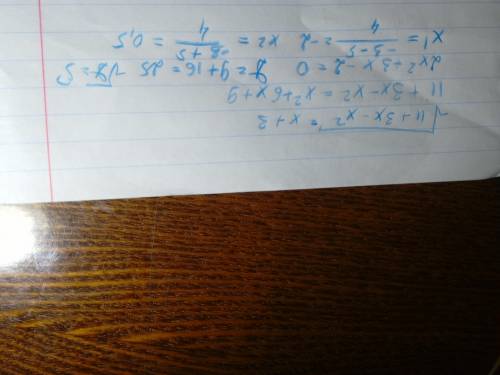 √11+3x-x² = x+3
11+3x-x² = x²+6x+9
2x²+3x-2=0 D=9+16=25 √D=5
x1= -3-5/4 =-2 x2= -3+5/4 =0,5